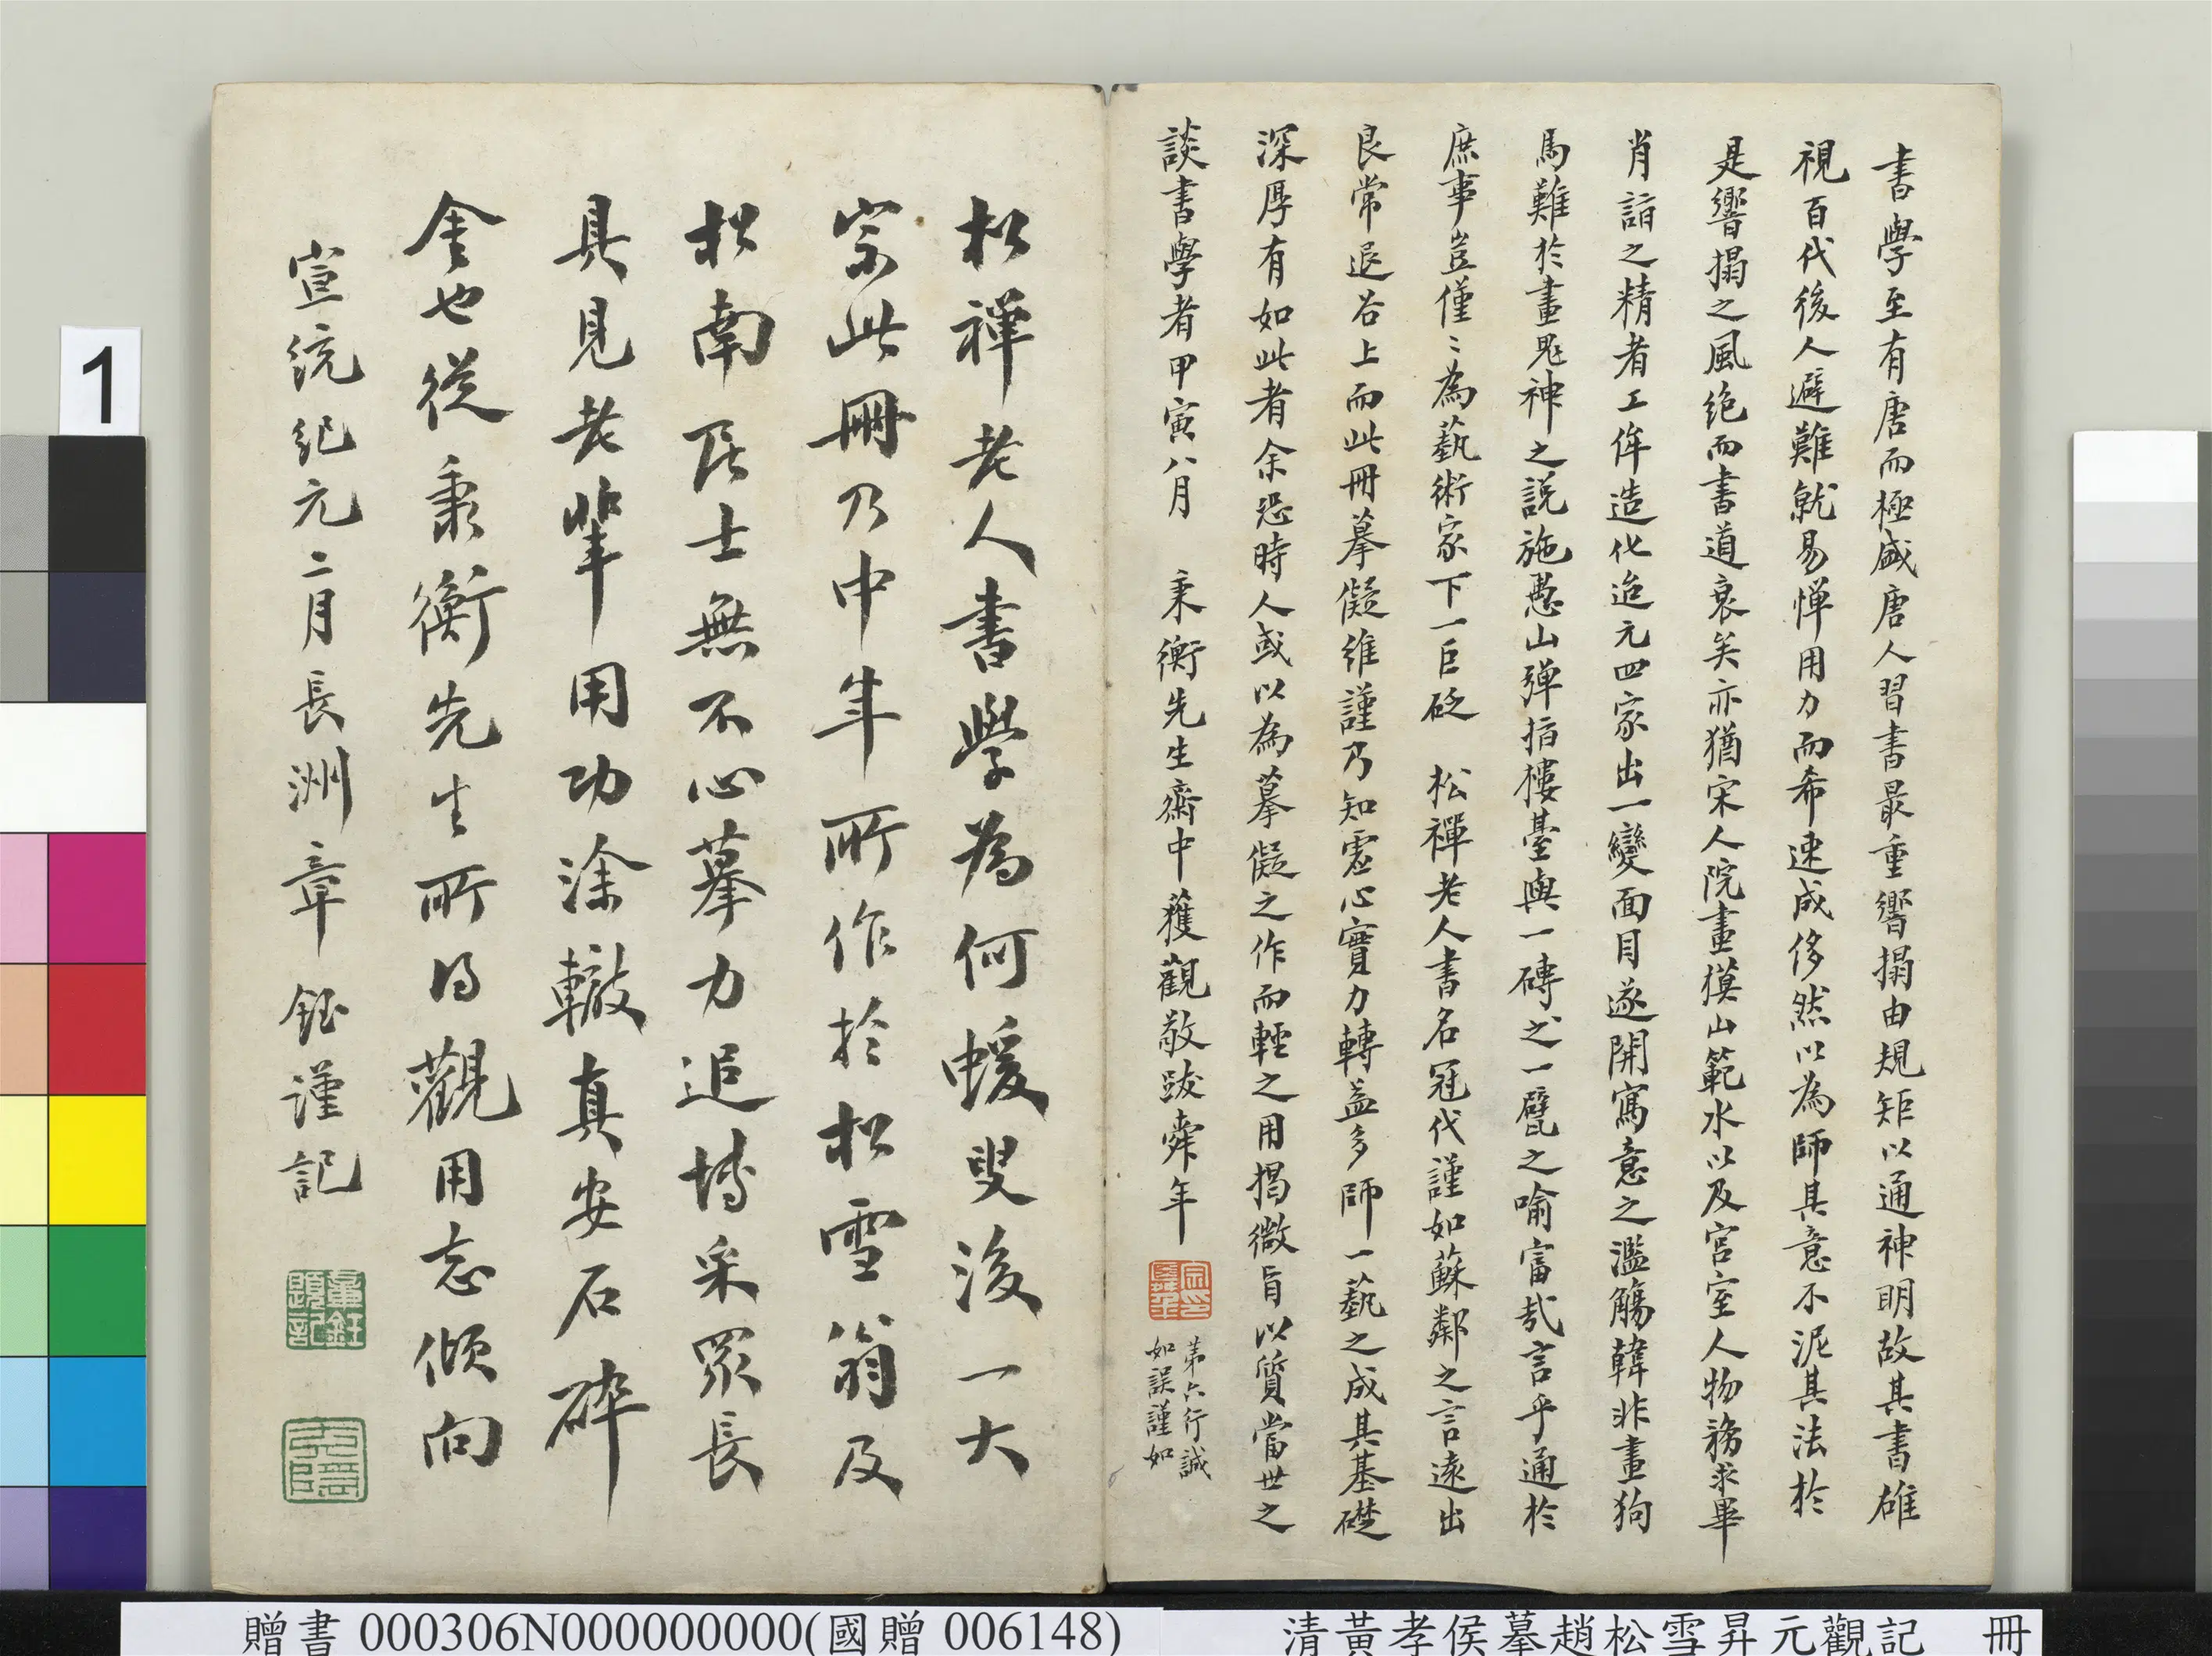 書學至有唐而極盛唐人習書最重響搨由規矩以通神明故其書雄
視百代後人避難就易憚用力而希速成侈然以為師其意不泥其法於
是響搨之風絕而書道衰矣亦猶宋人院畫摸山範水以及宮室人物務求畢
肖詣之精者工侔造化迨元四家出一變面目遂開寫意之濫觴韓非畫狗
馬難於畫鬼神之說施愚山彈指樓臺與一磚之一甓之喻富哉言乎通於
庶事豈僅〻為藝術家下一巨砭 松禪老人書名冠代謹如蘇鄰之言遠出
良常退谷上而此冊摹儗維謹乃知虛心實力轉益多師一藝之成其基礎
深厚有如此者余恐時人或以為摹儗之作而輕之用揭微旨以質當世之
談書學者甲寅八月 秉衡先生齋中獲觀敬跋舜年
第六行誠
如誤謹如
松禪老人書學為何蝯叟後一大
宗此冊乃中年所作於松雪翁及
松南居士無不心摹力追博采眾長
具見老輩用功涂轍真安石碎
金也從秉衡先生所得觀用志傾向
宣統紀元二月長洲章鈺謹記
章鈺題記
1
贈書 000306N000000000(國贈 006148)
清黃孝侯摹趙松雪昇元觀記 冊